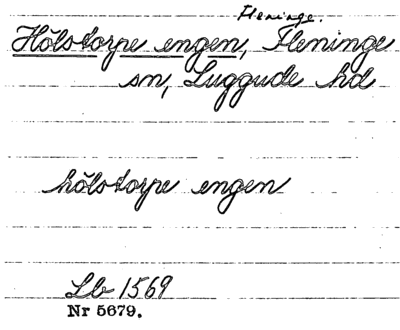 Fleninge.
Hölstorpe engen, Fleninge
sn, Luggude hd
hölstorpe engen
Lb 1569
Nr 5679.